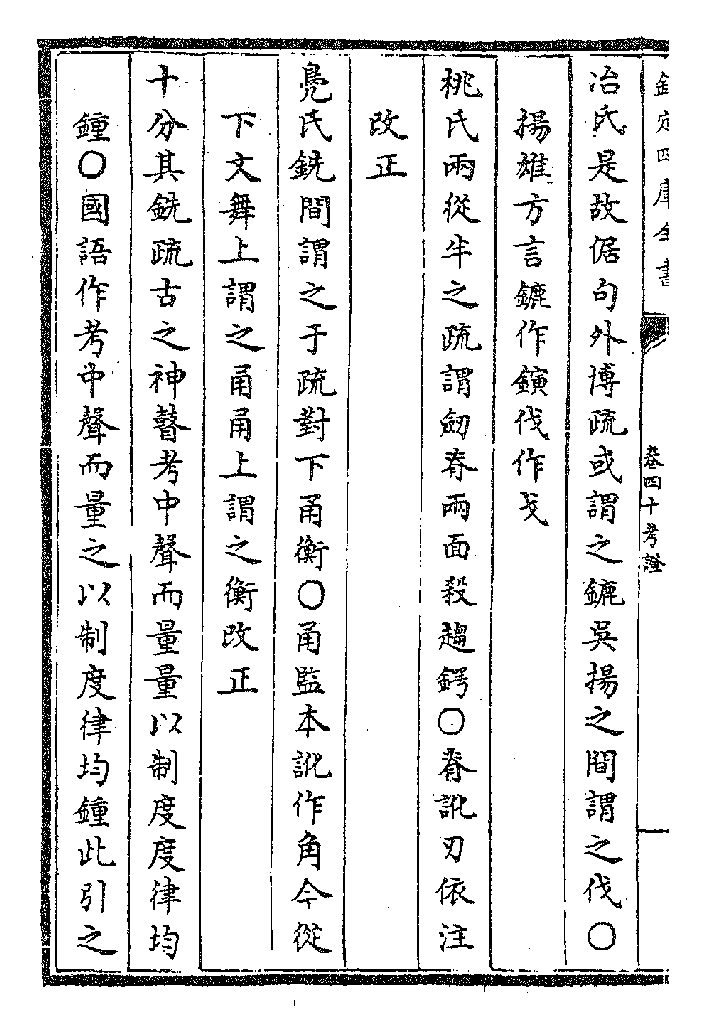 欽定四庫全書
卷四十考證
冶氏是故倨句外博疏或謂之鏕吳揚之間謂之伐〇
揚雄方言鏕作鏔伐作戈
桃氏兩從半之疏謂劒脊兩面殺趨鍔〇脊訛刃依注
改正
鳧氏銑間謂之于疏對下甬衡〇甬監本訛作角今從
下文舞上謂之甬甬上謂之衡改正
十分其銑疏古之神瞽考中聲而量量以制度度律均
鍾〇國語作考中聲而量之以制度律均鍾此引之